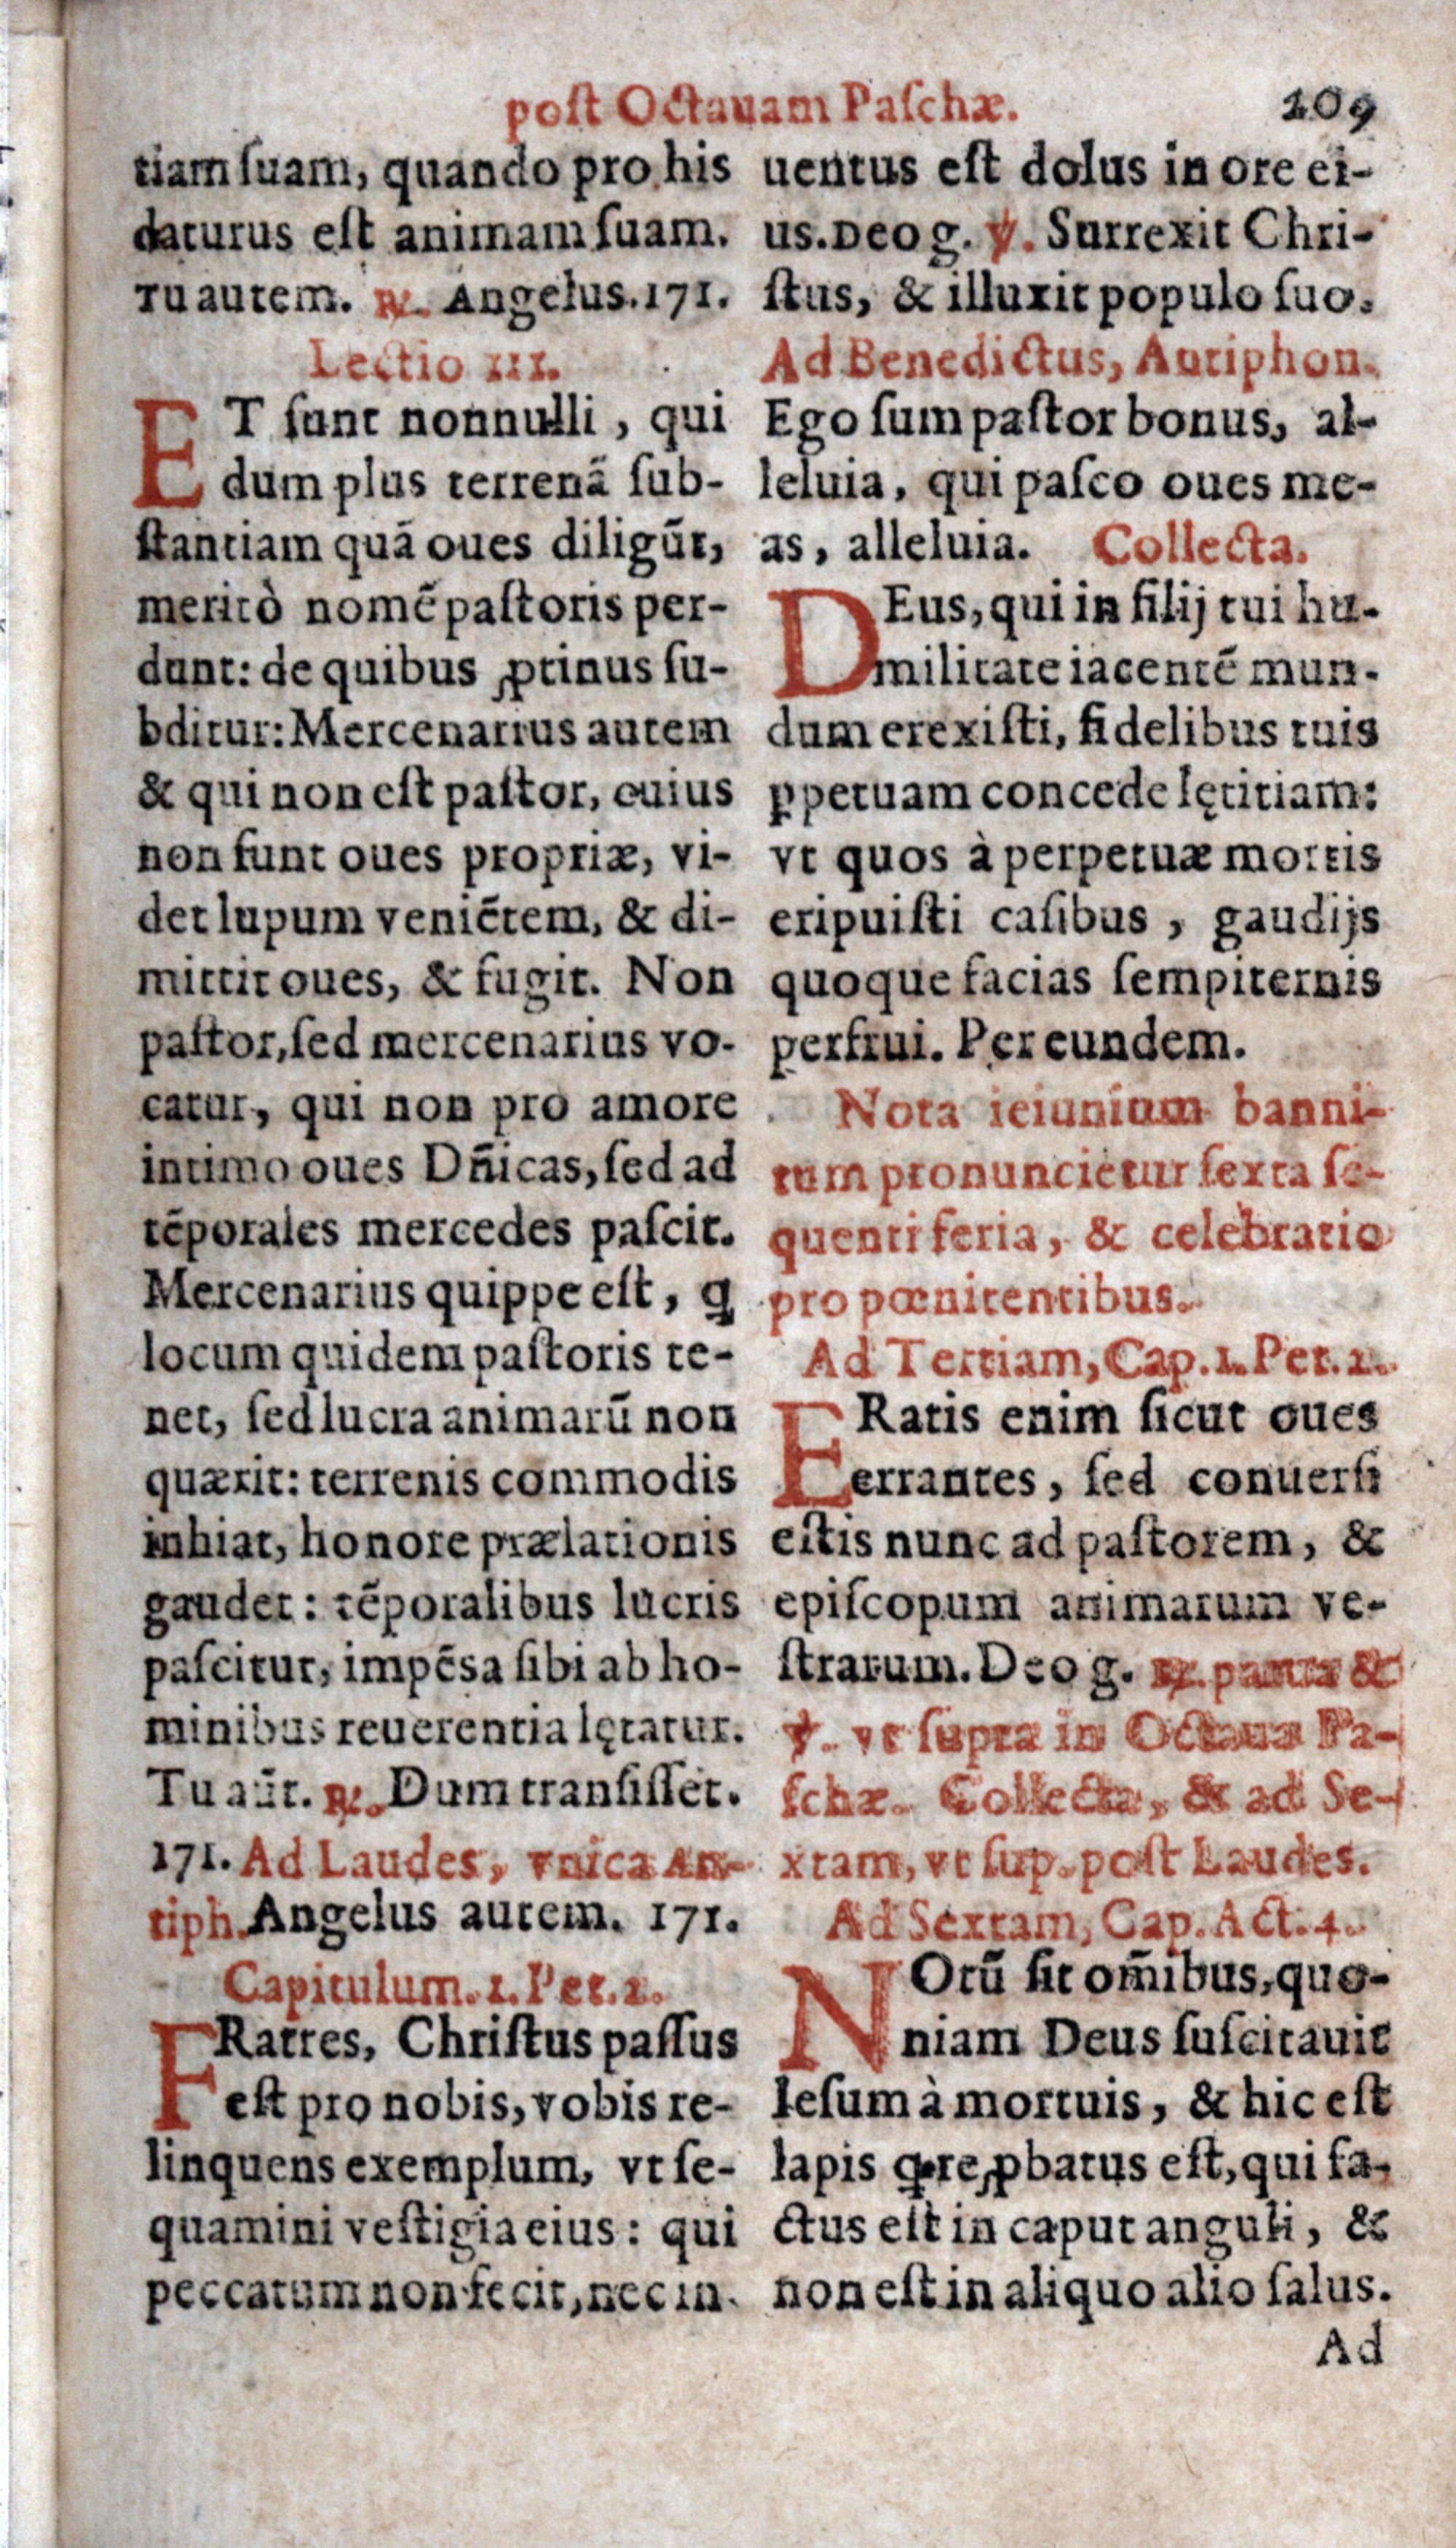 post Octauam Paſchæ. 209
tiam ſuam, quando pro his
daturus eſt animam ſuam.
Tu autem. ℟. Angelus. 171.
Lectio III.
ET ſunt nonnulli, qui
dum plus terrenā ſub-
ſtantiam quā oues diligūt,
meritò nomē paſtoris per-
dunt: de quibus ꝓtinus ſu-
bditur: Mercenarius autem
& qui non eſt paſtor, cuius
non ſunt oues propriæ, vi-
det lupum veniētem, & di-
mittit oues, & fugit. Non
paſtor, ſed mercenarius vo-
catur, qui non pro amore
intimo oues Dn̄icas, ſed ad
tēporales mercedes paſcit.
Mercenarius quippe eſt, ꝗ
locum quidem paſtoris te-
net, ſed lucra animarū non
quærit: terrenis commodis
inhiat, honore prælationis
gaudet: tēporalibus lucris
paſcitur, impēſa ſibi ab ho-
minibus reuerentia lętatur.
Tu aūt. ℟. Dum tranſiſſet.
171. Ad Laudes, vnica An-
tiph. Angelus autem. 171.
Capitulum. 1. Pet. 2.
FRatres, Chriſtus paſſus
eſt pro nobis, vobis re-
linquens exemplum, vt ſe-
quamini veſtigia eius: qui
peccatum non fecit, nec in-
uentus eſt dolus in ore ei-
us. Deo g. ℣. Surrexit Chri-
ſtus, & illuxit populo ſuo.
Ad Benedictus, Antiphon.
Ego ſum paſtor bonus, al-
leluia, qui paſco oues me-
as, alleluia. Collecta.
DEus, qui in filij tui hu-
militate iacentē mun-
dum erexiſti, fidelibus tuis
ꝑpetuam concede lętitiam:
vt quos à perpetuæ mortis
eripuiſti caſibus, gaudijs
quoque facias ſempiternis
perfrui. Per eundem.
Nota ieiunium banni-
tum pronuncietur ſexta ſe-
quenti feria, & celebratio
pro pœnitentibus.
Ad Tertiam, Cap. 1. Pet. 2.
ERatis enim ſicut oues
errantes, ſed conuerſi
eſtis nunc ad paſtorem, &
epiſcopum animarum ve-
ſtrarum. Deo g. ℟. parua &
℣. vt ſupra in Octaua Pa-
ſchæ. Collecta, & ad Se-
xtam, vt ſup. poſt Laudes.
Ad Sextam, Cap. Act. 4.
NOtū ſit om̄ibus, quo-
niam Deus ſuſcitauit
Ieſum à mortuis, & hic eſt
lapis ꝗ reꝓbatus eſt, qui fa-
ctus eſt in caput anguli, &
non eſt in aliquo alio ſalus.
Ad